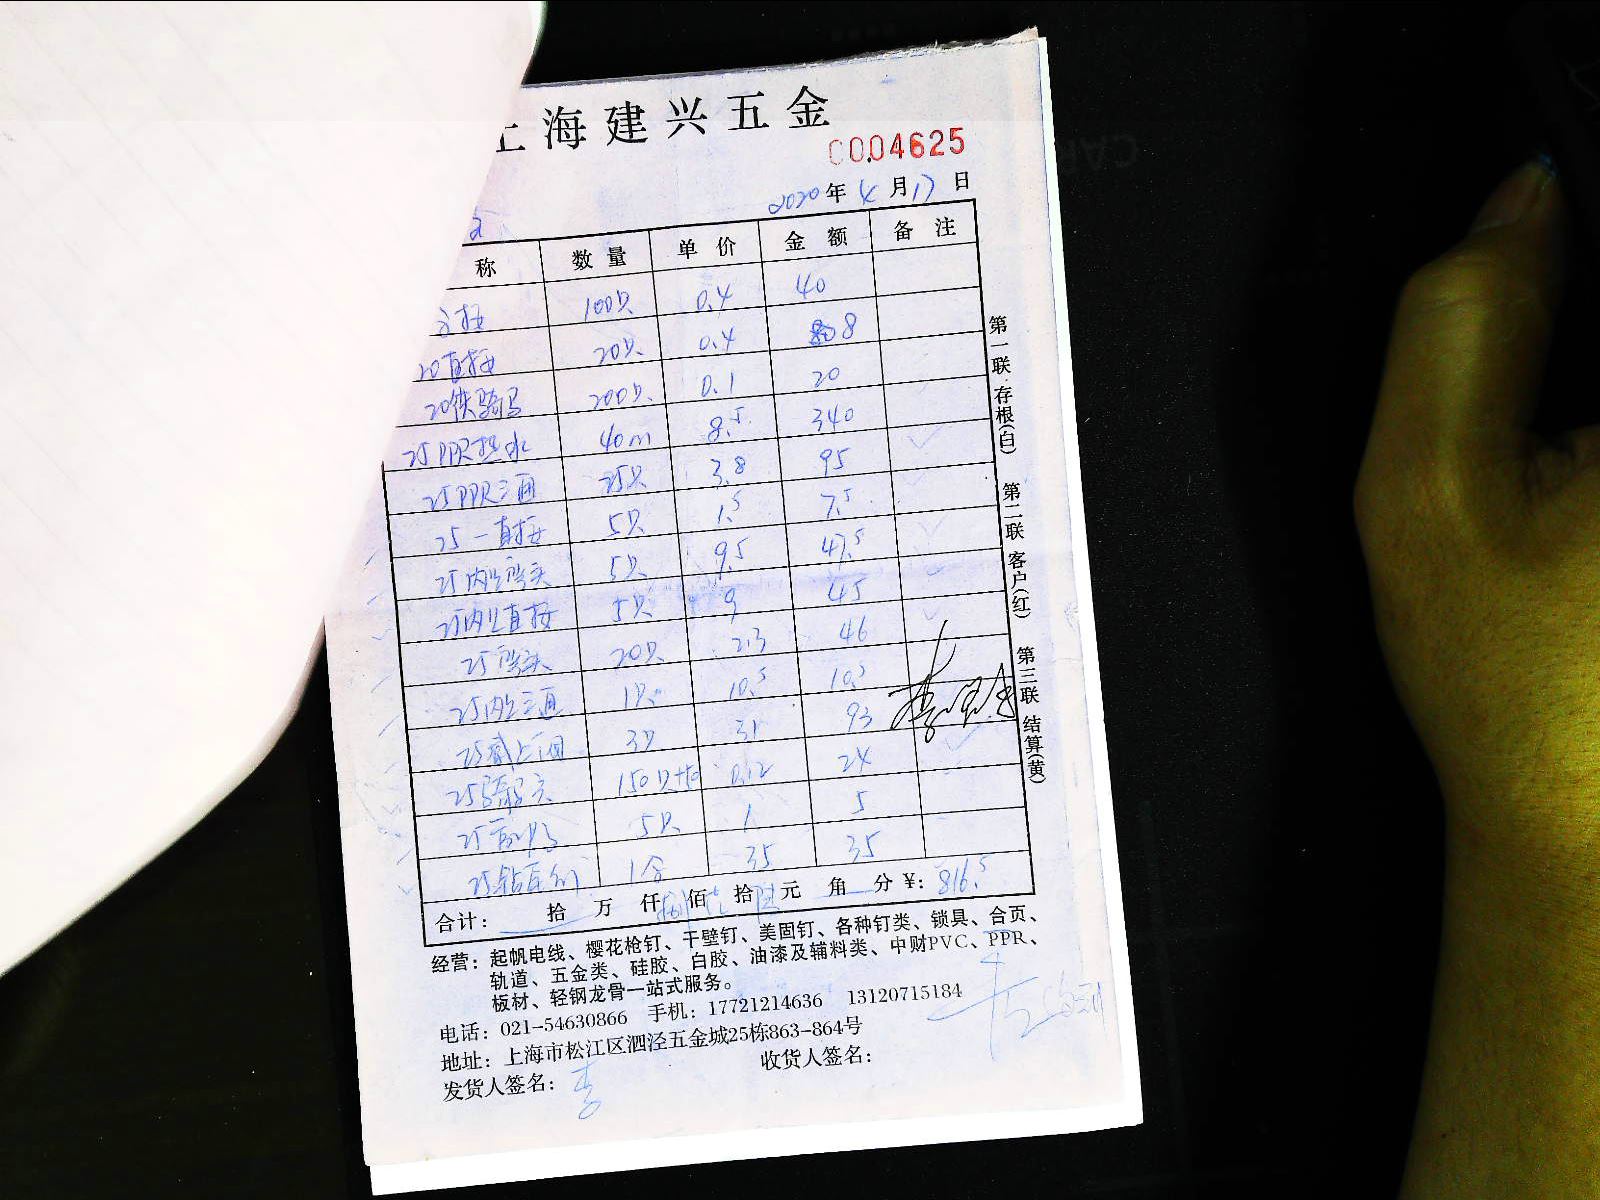 上海建兴五金
0004625
2020年4月17日
称 数量 单价 金额 备注
直接 100只 0.4 40
20直接 20只 0.4 8
20铁骑马 200只 0.1 20
25PPR热水 40m 8.5 340
25PPR三通 25只 3.8 95
25一直接 5只 1.5 7.5
25内丝弯头 5只 9.5 47.5
25内丝直接 5只 9 45
25弯头 20只 2.3 46
25内丝三通 1只 10.5 10.5
25 3只 31 93
25 150只 0.12 24
25 5只 1 5
25钻尾 1合 35 35
合计: 拾 万 仟 捌佰 拾 陆元 角 分 ¥: 816.5
第一联 存根(白) 第二联 客户(红) 第三联 结算(黄)
经营: 起帆电线、樱花枪钉、干壁钉、美固钉、各种钉类、锁具、合页、
轨道、五金类、硅胶、白胶、油漆及辅料类、中财PVC、PPR、
板材、轻钢龙骨一站式服务。
电话: 021-54630866 手机: 17721214636 13120715184
地址: 上海市松江区泗泾五金城25栋863-864号
发货人签名: 李 收货人签名: